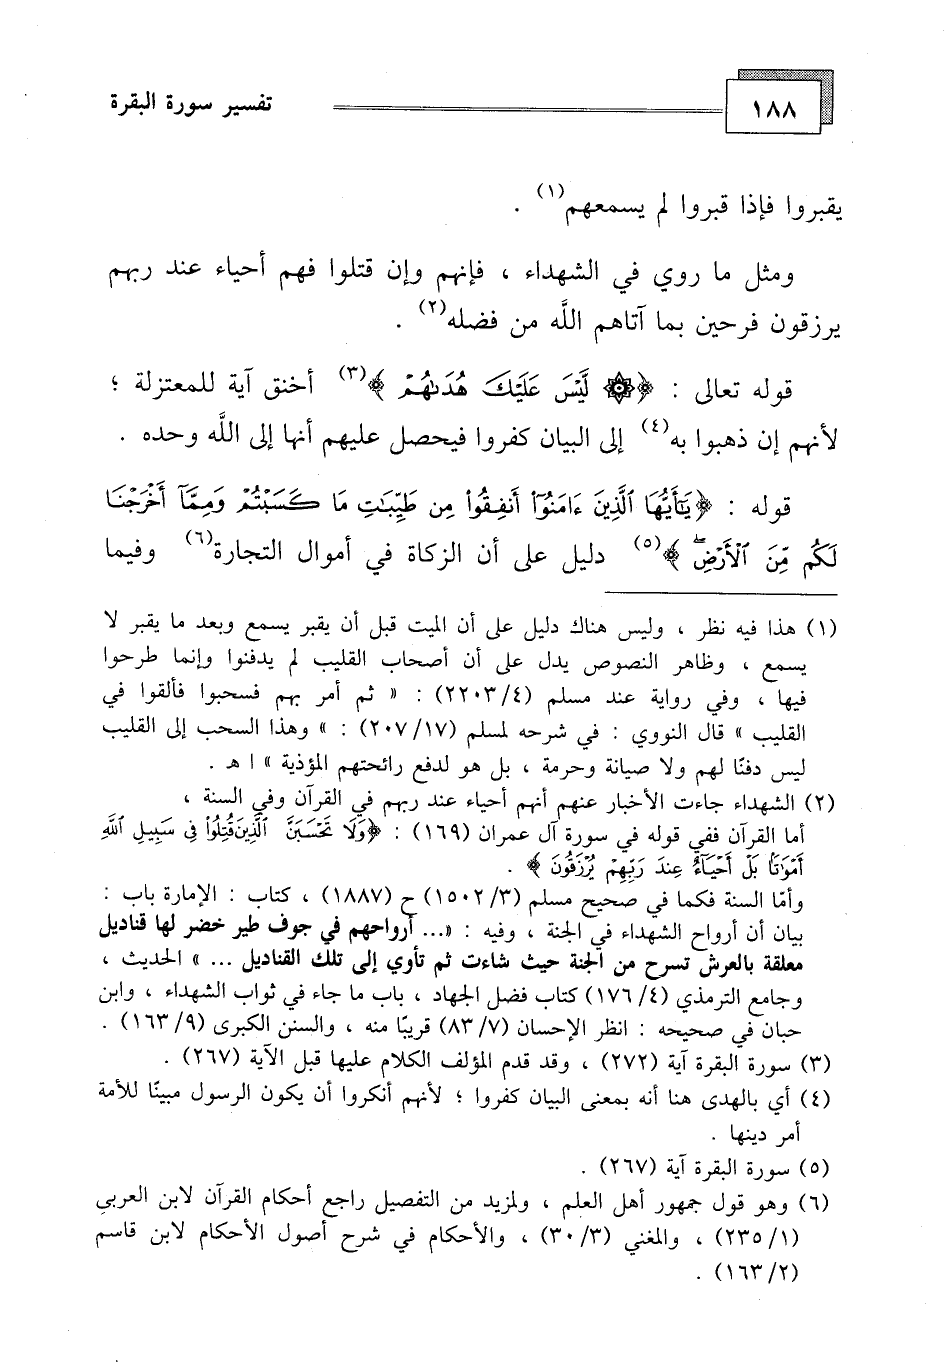 تفسير سورة البقرة ١٨٨
يقبروا فإذا قبروا لم يسمعهم(١) .
ومثل ما روي في الشهداء ، فإنهم وإن قتلوا فهم أحياء عند ربهم
يرزقون فرحين بما آتاهم اللَّه من فضله(٢) .
قوله تعالى : ﴿۞ لَّيْسَ عَلَيْكَ هُدَىٰهُمْ ﴾(٣) أخنق آية للمعتزلة ؛
لأنهم إن ذهبوا به(٤) إلى البيان كفروا فيحصل عليهم أنها إلى اللَّه وحده .
قوله : ﴿ يَٰٓأَيُّهَا ٱلَّذِينَ ءَامَنُوٓا۟ أَنفِقُوا۟ مِن طَيِّبَٰتِ مَا كَسَبْتُمْ وَمِمَّآ أَخْرَجْنَا
لَكُم مِّنَ ٱلْأَرْضِ ۖ ﴾(٥) دليل على أن الزكاة في أموال التجارة(٦) وفيما
(١) هذا فيه نظر ، وليس هناك دليل على أن الميت قبل أن يقبر يسمع وبعد ما يقبر لا
يسمع ، وظاهر النصوص يدل على أن أصحاب القليب لم يدفنوا وإنما طرحوا
فيها ، وفي رواية عند مسلم (٢٢٠٣/٤) : « ثم أمر بهم فسحبوا فألقوا في
القليب » قال النووي : في شرحه لمسلم (٢٠٧/١٧) : » وهذا السحب إلى القليب
ليس دفنًا لهم ولا صيانة وحرمة ، بل هو لدفع رائحتهم المؤذية » ا هـ .
(٢) الشهداء جاءت الأخبار عنهم أنهم أحياء عند ربهم في القرآن وفي السنة ،
أما القرآن ففي قوله في سورة آل عمران (١٦٩) : ﴿وَلَا تَحْسَبَنَّ ٱلَّذِينَ قُتِلُوا۟ فِى سَبِيلِ ٱللَّهِ
أَمْوَٰتًۢا بَلْ أَحْيَآءٌ عِندَ رَبِّهِمْ يُرْزَقُونَ ﴾ .
وأمّا السنة فكما في صحيح مسلم (١٥٠٢/٣) ح (١٨٨٧) ، كتاب : الإمارة باب :
بيان أن أرواح الشهداء في الجنة ، وفيه : «... أرواحهم في جوف طير خضر لها قناديل
معلقة بالعرش تسرح من الجنة حيث شاءت ثم تأوي إلى تلك القناديل ... » الحديث ،
وجامع الترمذي (١٧٦/٤) كتاب فضل الجهاد ، باب ما جاء في ثواب الشهداء ، وابن
حبان في صحيحه : انظر الإحسان (٨٣/٧) قريبًا منه ، والسنن الكبرى (١٦٣/٩) .
(٣) سورة البقرة آية (٢٧٢) ، وقد قدم المؤلف الكلام عليها قبل الآية (٢٦٧) .
(٤) أي بالهدى هنا أنه بمعنى البيان كفروا ؛ لأنهم أنكروا أن يكون الرسول مبينًا للأمة
أمر دينها .
(٥) سورة البقرة آية (٢٦٧) .
(٦) وهو قول جمهور أهل العلم ، ولمزيد من التفصيل راجع أحكام القرآن لابن العربي
(٢٣٥/١) ، والمغني (٣٠/٣) ، والأحكام في شرح أصول الأحكام لابن قاسم
(١٦٣/٢) .